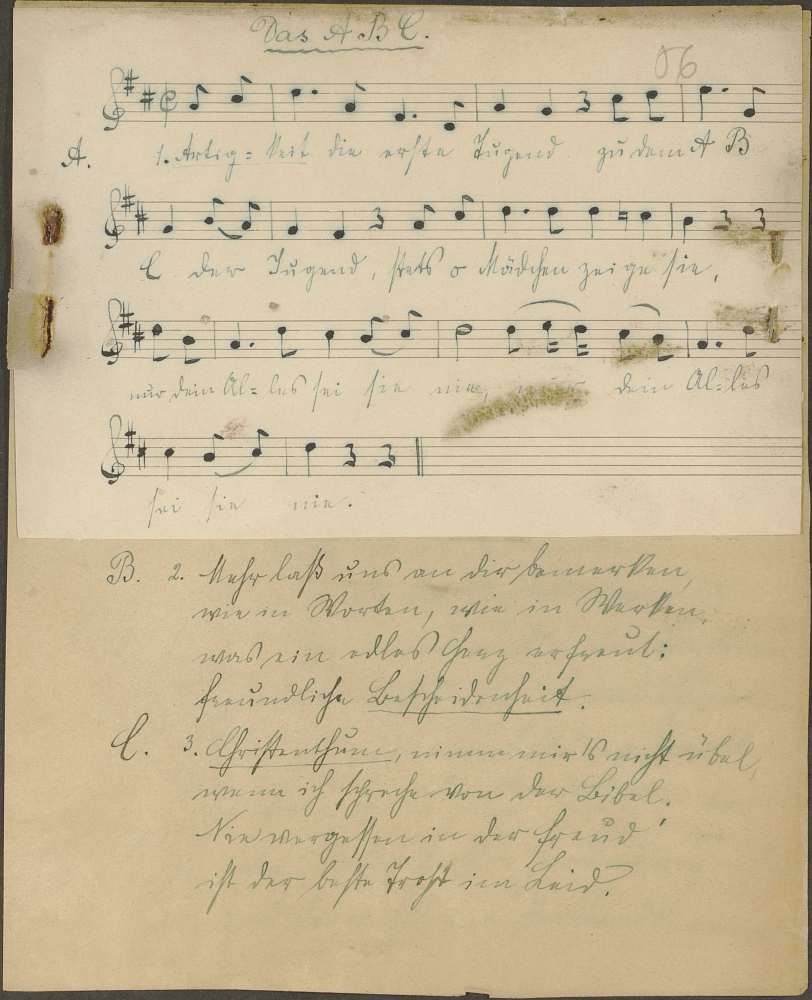 Das A B C.
56
A. 1. Artig= keit die erste Tugend zu dem A B
C der Jugend, stets o Mädchen zeige sie,
nur dein Al= les sei sie nie, nur dein Al=les
sei sie nie.
B. 2. Mehr laß uns an dir bemerken,
wie in Worten, wie in Werken,
was ein edles Herz erfreut:
freundliche Bescheidenheit.
C. 3. Christenthum, nimm mir's nicht übel,
wenn ich spreche von der Bibel.
Nie vergessen in der Freud'
ist der beste Trost im Leid.